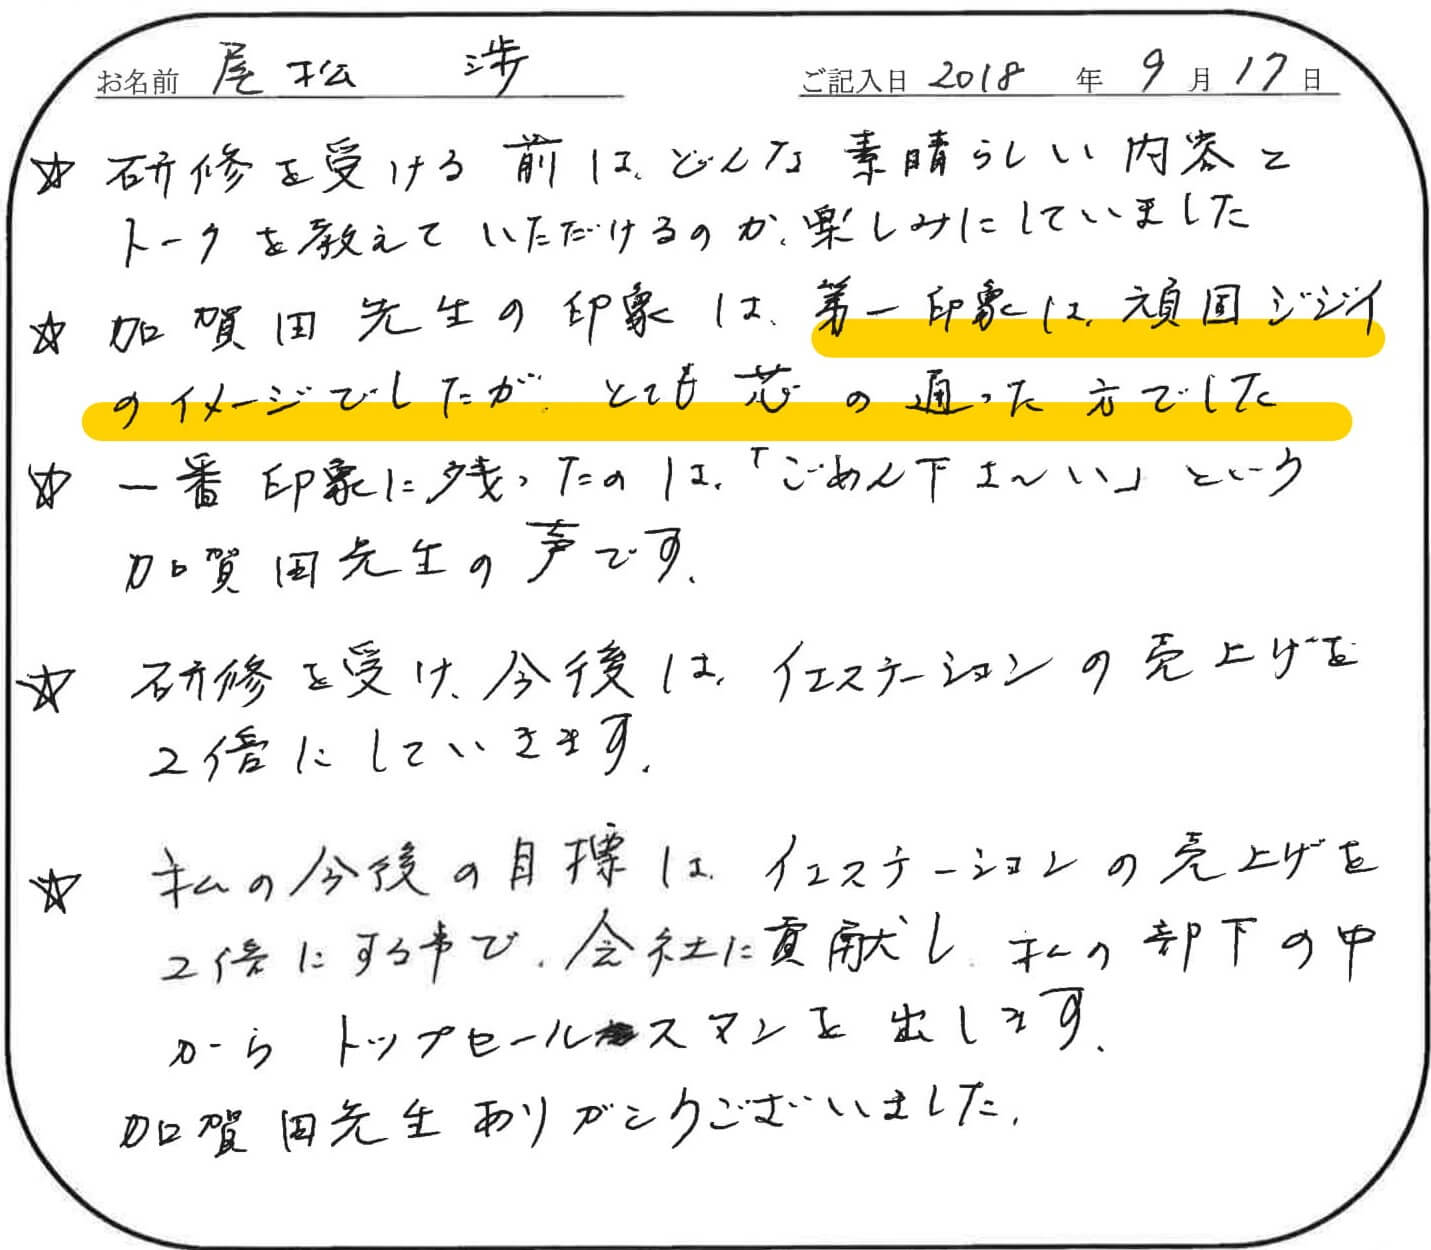 お名前 尾松 渉 ご記入日 2018 年 9 月 17 日
☆ 研修を受ける前は、どんな素晴らしい内容と
トークを教えていただけるのか、楽しみにしていました
☆ 加賀田先生の印象は、第一印象は、頑固ジジイ
のイメージでしたが、とても芯の通った方でした
☆ 一番印象に残ったのは、「ごめん下さ〜い」という
加賀田先生の声です。
☆ 研修を受け、今後は、イエステーションの売上げを
2倍にしていきます。
☆ 私の今後の目標は、イエステーションの売上げを
2倍にする事で、会社に貢献し、私の部下の中
から トップセールスマンを出します。
加賀田先生ありがとうございました。